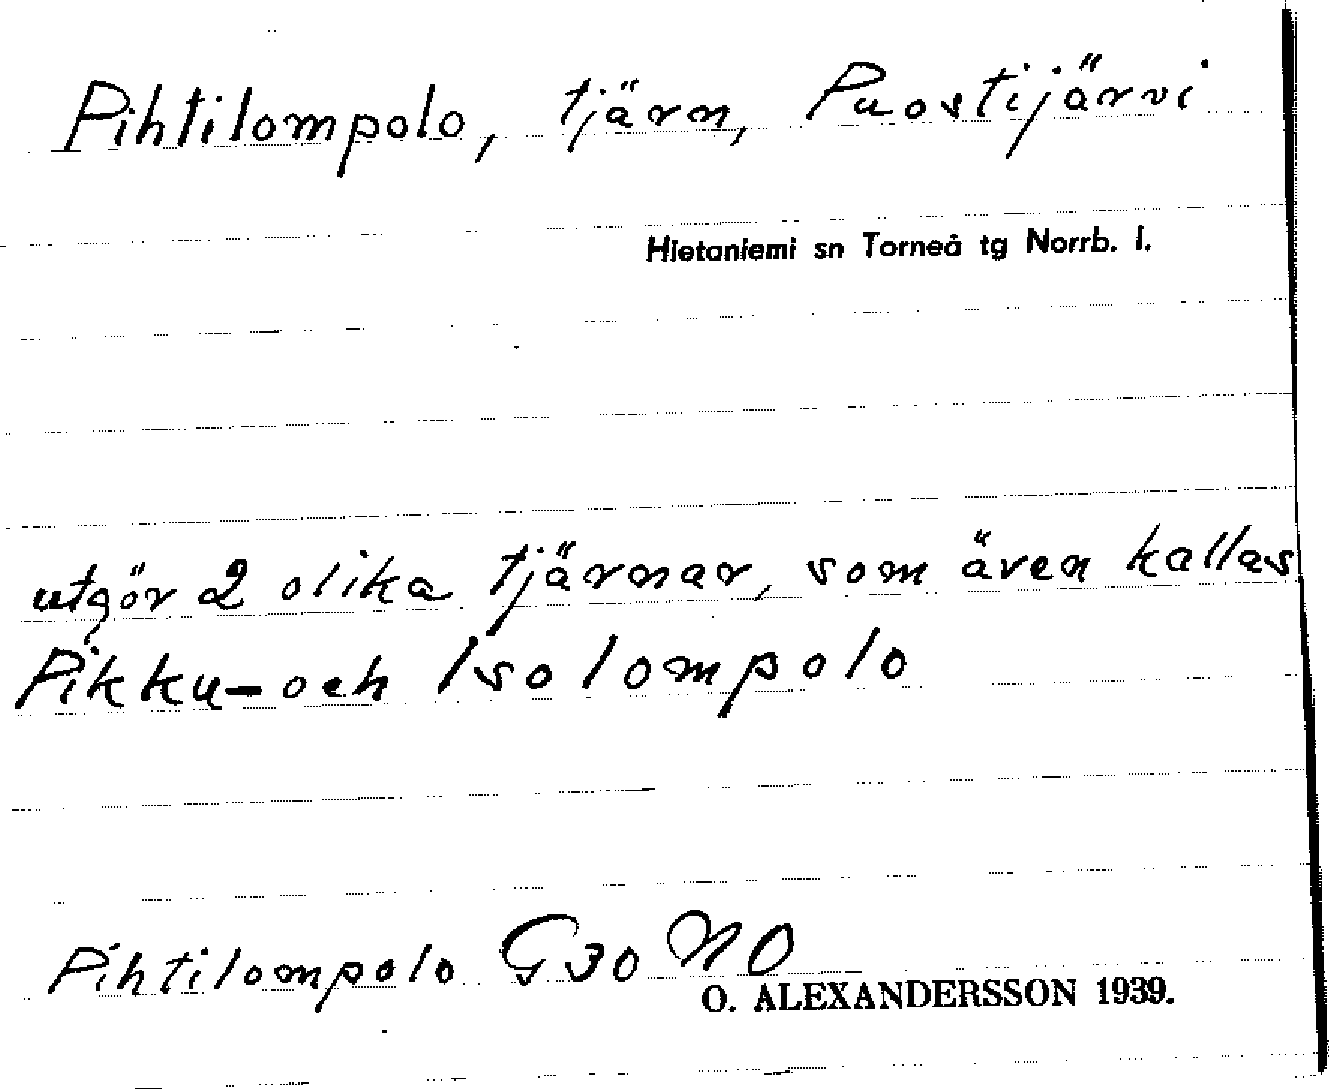 Pihtilompolo, tjärn, Puostijärvi
Hietaniemi sn Torneå tg Norrb. l.
utgör 2 olika tjärnar, som även kallas
Pikku- och Isolompolo
Pihtilompolo G30 NO
O. ALEXANDERSSON 1939.